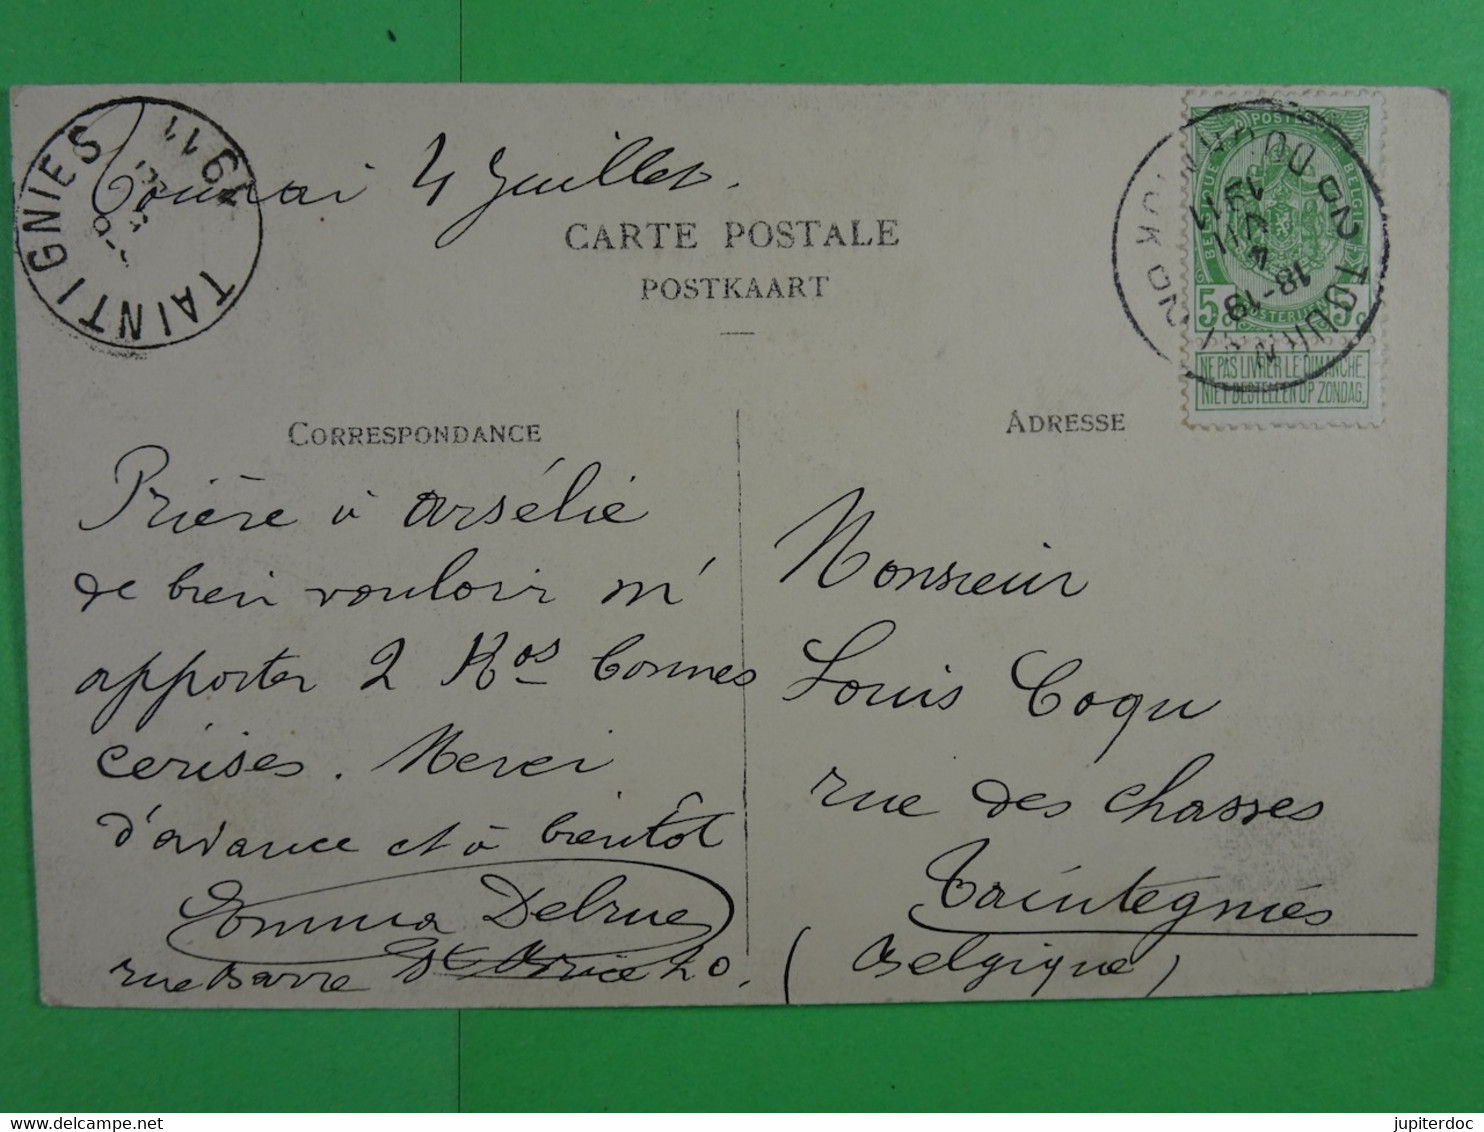 TAINTIGNIES
1911
Tournai 4 Juillet.
CARTE POSTALE
POSTKAART
TOURNAI
DOORNIJK
18-19
4
VII
1911
POSTES
BELGIQUE
BELGIË
5c 5c
NE PAS LIVRER LE DIMANCHE
NIET BESTELLEN OP ZONDAG
CORRESPONDANCE
ADRESSE
Prière à Arsélie
de bien vouloir m'
apporter 2 Kos bonnes
cerises. Merci
d'avance et à bientôt
Emma Delrue
rue Barre St Brice 20.
Monsieur
Louis Coqu
rue des Chasses
Taintegnies
(Belgique)
delcampe.net
jupiterdoc